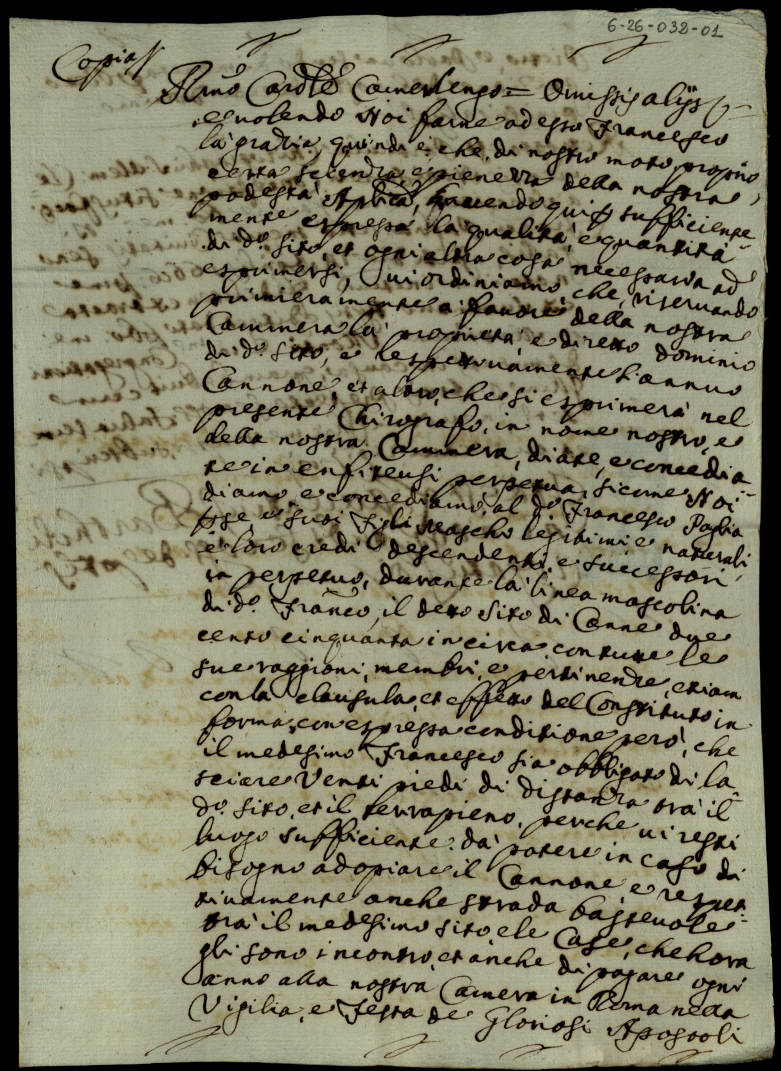 6-26-038-01
Copia
Rmo Cardle Camerlengo = Omissis alijs
e volendo Noi farne ad esso Francesco
la grazia, quindi è, che di nostro moto proprio,
certa scienza, e pienezza della nostra
podestà Aplica, havendo qui p sufficiente
mente espressa la qualità, e quantità
di do. sito, et ogni altra cosa necessaria ad
esprimersi, vi ordiniamo, che, riservando
primieramente a favore della nostra
Cammera la proprietà, e diretto dominio
di do. sito, e respettivamente l'annuo
Cannone, et altro, che si esprimerà nel
presente Chirografo, in nome nostro, e
della nostra Cammera, diate, e concedia
te in enfiteusi perpetua, sicome Noi
diamo, e concediamo, al do. Francesco Paglia
p se, e suoi figli maschi legitimi, e naturali,
e loro eredi descendenti, e successori
in perpetuo, durante la linea mascolina
di do. Franco, il detto sito di Canne due
cento cinquanta in circa, con tutte le
sue raggioni, membri, e pertinenze, etiam
con la clausula, et effetto del Constituto in
forma, con espressa conditione però, che
il medesimo Francesco sia obbligato di la
sciare Venti piedi di distanza trà il
do. sito, et il terrapieno, perche vi resti
luogo sufficiente da potere in caso di
bisogno adopiare il Cannone, e respet
tivamente anche strada bastevole
trà il medesimo sito, e le Case, che hora
gli sono incontro, et anche di pagare ogni
anno alla nostra Camera in Roma nella
Vigilia, e Festa de Gloriosi Apostoli